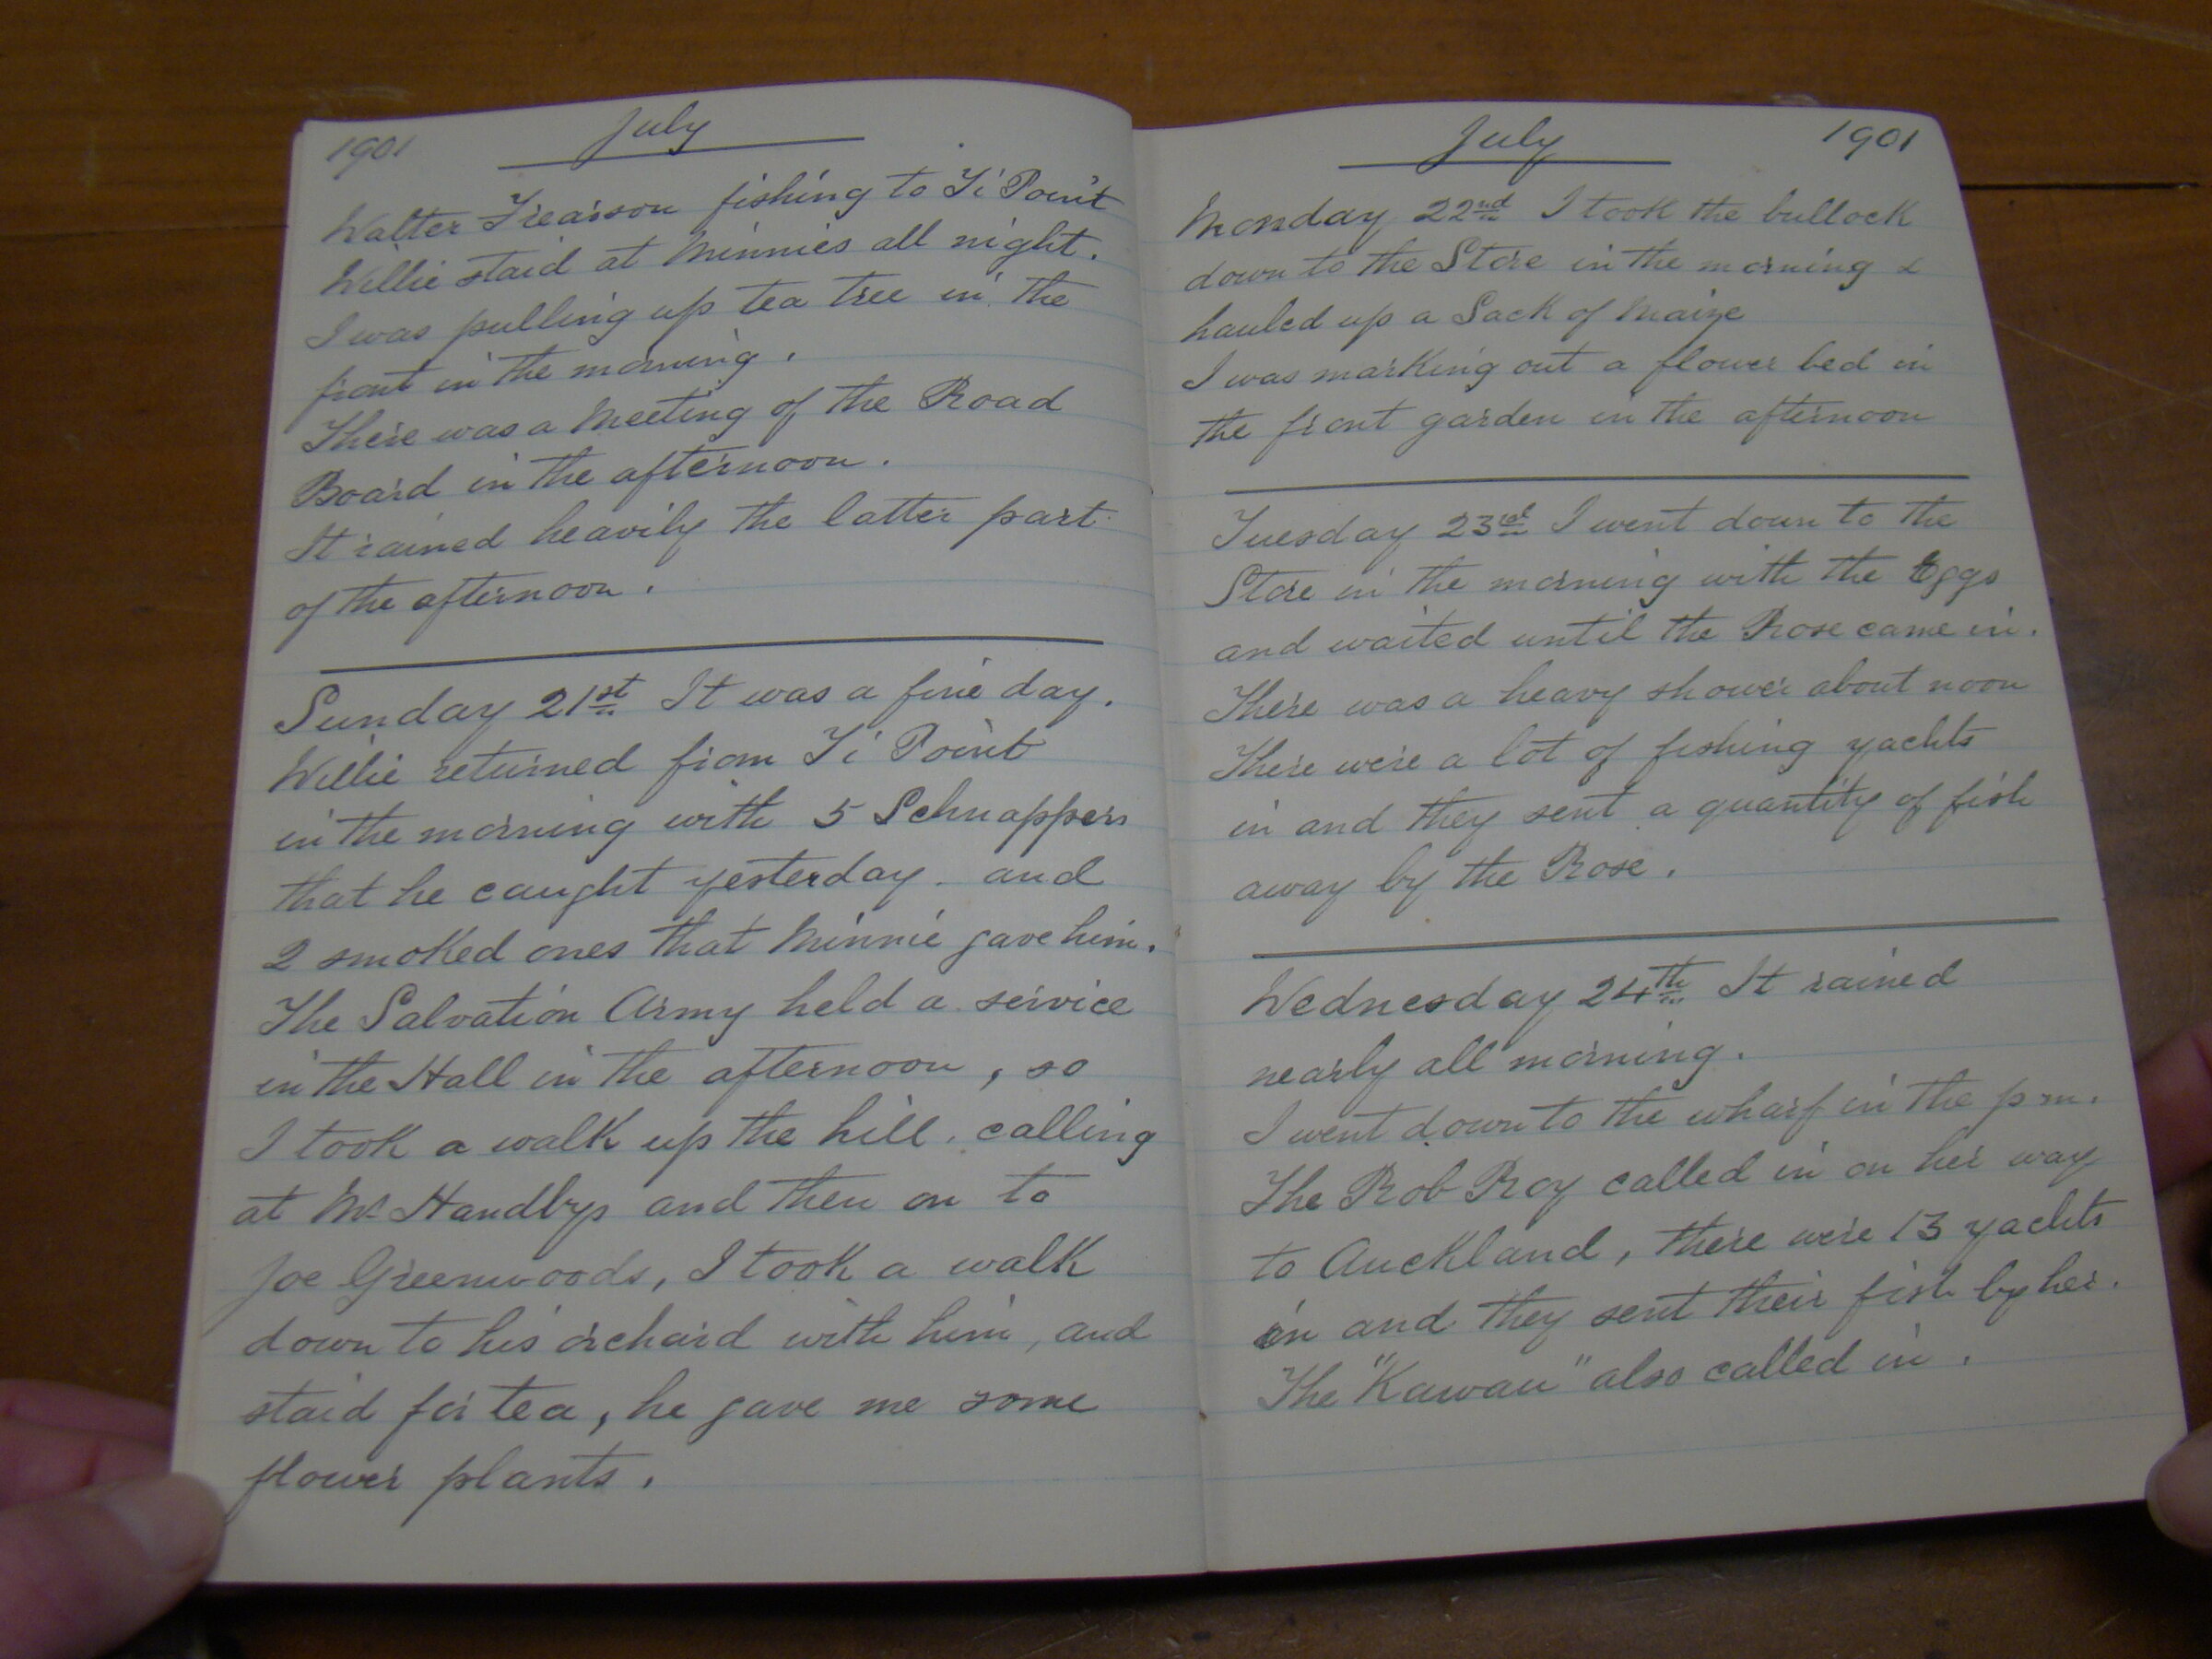 1901 July
Walter Frearson fishing to Ti Point
Willie staid at Minnies all night.
I was pulling up tea tree in the
front in the morning.
There was a Meeting of the Road
Board in the afternoon.
It rained heavily the latter part
of the afternoon.
Sunday 21st It was a fine day.
Willie returned from Ti Point
in the morning with 5 Schnappers
that he caught yesterday. and
2 smoked ones that Minnie gave him.
The Salvation Army held a service
in the Hall in the afternoon, so
I took a walk up the hill. calling
at Mr Handbys and then on to
Joe Greenwoods, I took a walk
down to his orchard with him, and
staid for tea, he gave me some
flower plants.
July 1901
Monday 22nd I took the bullock
down to the Store in the morning &
hauled up a Sack of Maize
I was marking out a flower bed in
the front garden in the afternoon
Tuesday 23rd I went down to the
Store in the morning with the Eggs
and waited until the Rose came in.
There was a heavy shower about noon
There were a lot of fishing yachts
in and they sent a quantity of fish
away by the Rose.
Wednesday 24th It rained
nearly all morning.
I went down to the wharf in the p m.
The Rob Roy called in on her way
to Auckland, there were 13 yachts
in and they sent their fish by her.
The "Kawau" also called in.